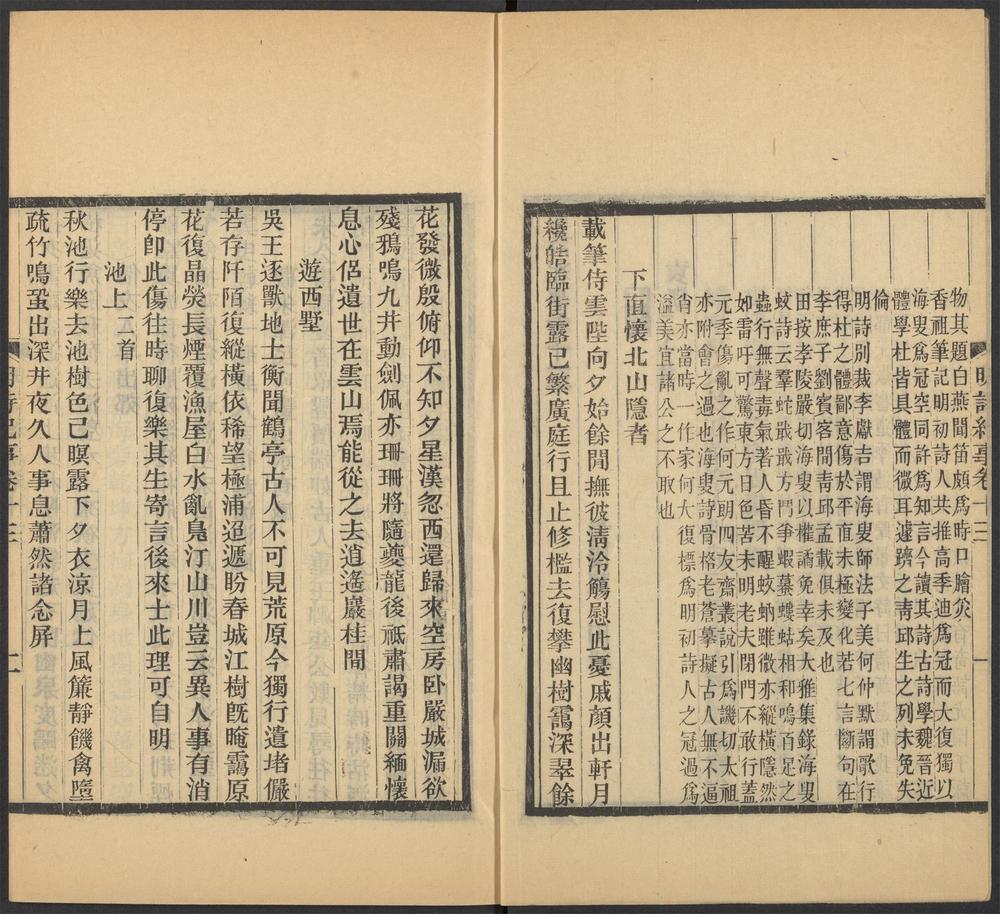 明詩紀事卷十三　一
物其題白燕聞笛頗爲時口膾炙
香祖筆記明初詩人共推高季迪爲冠而大復獨以
海叟爲冠空同許爲知言今讀其詩古詩學魏晉近
體學杜皆具體而微耳遽躋之靑邱生之列未免失
倫
明詩別裁李獻吉謂海叟師法子美何仲默謂歌行
得杜之體鄙意傷於平直未極變化若七言斷句在
李庶子劉賓客間靑邱孟載俱未及也
田按孝陵嚴切海叟以權譎免幸矣大雅集錄海叟
蚊詩云羣蛇戢戢方鬥爭蝦蟇螻蛄相和鳴百足之
蟲行無聲毒氣著人昏不醒蚊蚋雖微亦縱橫隱然
如雷吁可驚東方日色苦未明老夫閉門不敢行蓋
元季傷亂之作何元朗四友齋叢說引爲譏切太祖
亦附會之過也海叟詩骨格老蒼摹擬古人無不逼
肖亦當時一作家何大復標爲明初詩人之冠過爲
溢美宜諸公之不取也
下直懷北山隱者
載筆侍雲陛向夕始餘閒撫彼淸泠觴慰此憂戚顏出軒月
纔皓臨街露已繁廣庭行且止修檻去復攀幽樹靄深翠餘
花發微殷俯仰不知夕星漢忽西還歸來空房卧嚴城漏欲
殘鴉鳴九井動劍佩亦珊珊將隨夔龍後祗肅謁重關緬懷
息心侶遺世在雲山焉能從之去逍遙巖桂間
遊西墅
吳王逐獸地士衡聞鶴亭古人不可見荒原今獨行遺堵儼
若存阡陌復縱橫依稀望極浦迢遞盼春城江樹旣晻靄原
花復晶熒長煙覆漁屋白水亂鳧汀山川豈云異人事有消
停卽此傷往時聊復樂其生寄言後來士此理可自明
池上二首
秋池行樂去池樹色已暝露下夕衣涼月上風簾靜饑禽墮
疏竹鳴蛩出深井夜久人事息蕭然諸念屏
明詩紀事卷十三　二